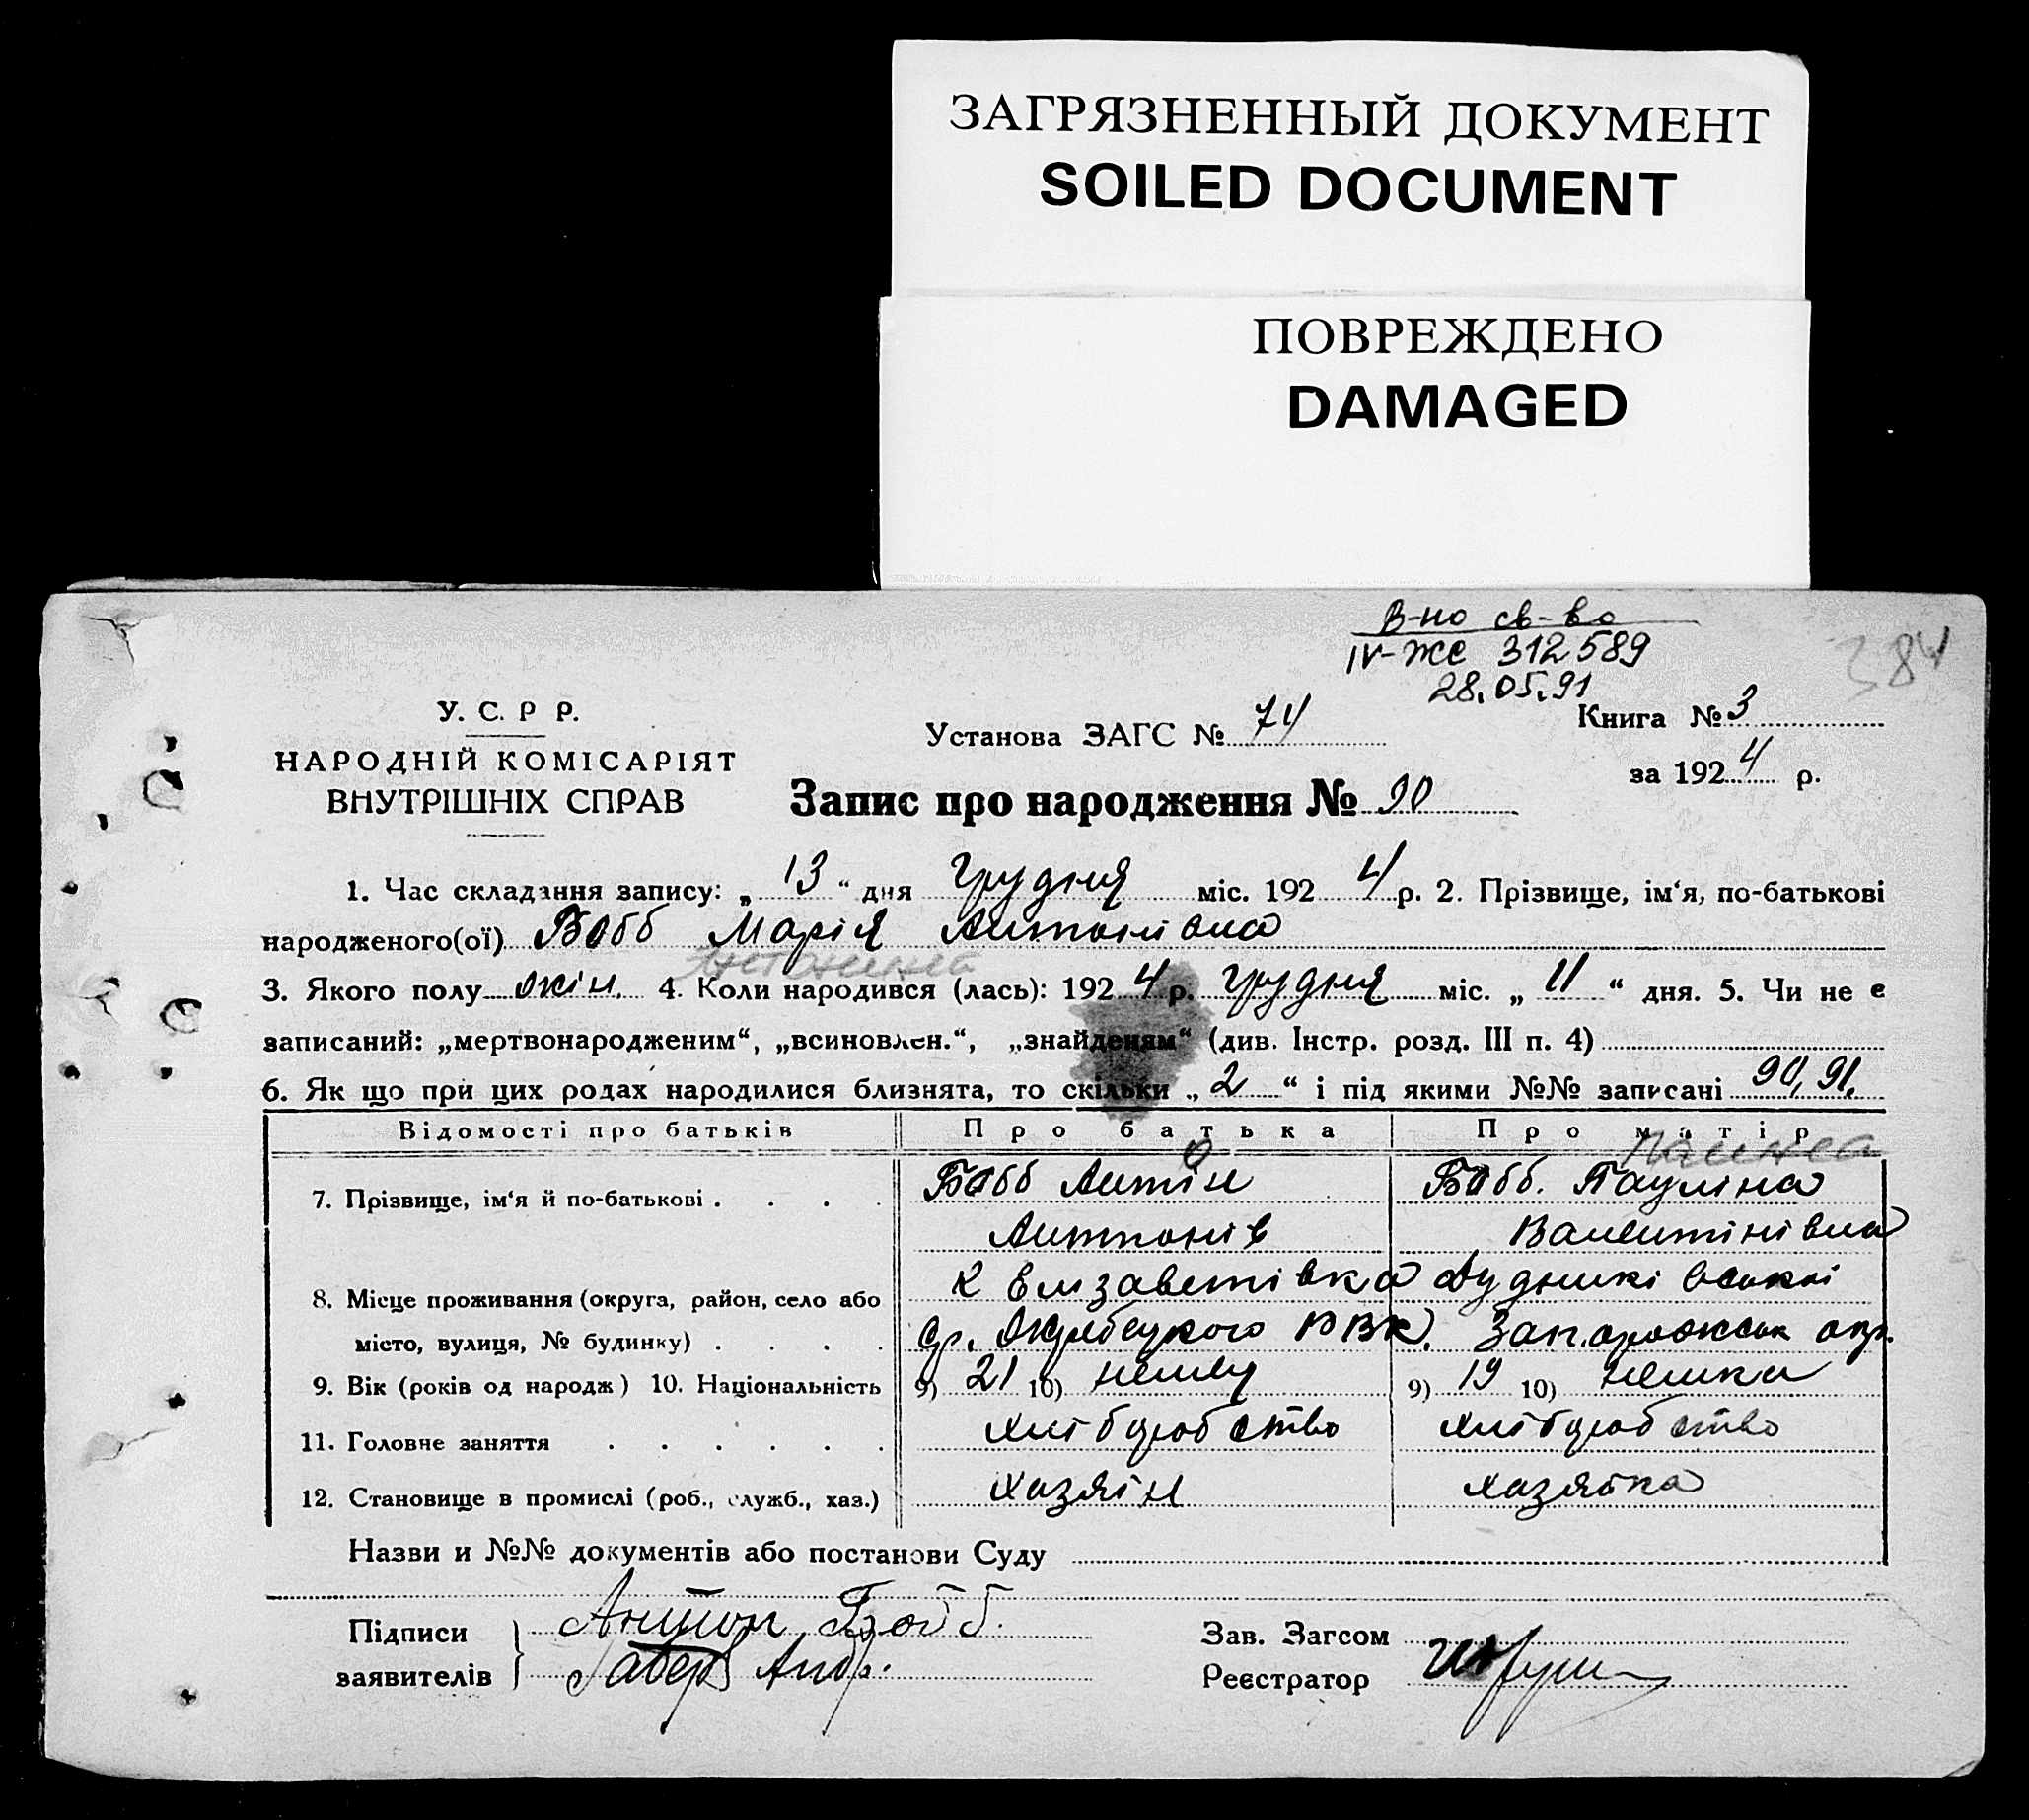 ЗАГРЯЗНЕННЫЙ ДОКУМЕНТ
SOILED DOCUMENT
ПОВРЕЖДЕНО
DAMAGED
В-но св-во
IV-ЖС 312589
28.05.91
384
У. С. Р Р.
НАРОДНІЙ КОМІСАРІЯТ
ВНУТРІШНІХ СПРАВ
Установа ЗАГС № 74
Книга № 3
за 1924 р.
Запис про народження № 90
1. Час складання запису: „ 13 “ дня Грудня міс. 1924 р. 2. Прізвище, ім‘я, по-батькові
народженого(ої) Бобб Марія Антонівна
Антонина
3. Якого полу жін. 4. Коли народився (лась): 1924 р. Грудня міс. „ 11 “ дня. 5. Чи не є
записаний: „мертвонародженим“, „всиновлен.“, „знайденям“ (див. Інстр. розд. III п. 4)
6. Як що при цих родах народилися близнята, то скільки „ 2 “ і під якими №№ записані 90, 91.
Відомості про батьків Про батька Про матір
7. Прізвище, ім‘я й по-батькові Бобб Антін Бобб. Пауліна
Антонів Валентінівна
8. Місце проживання (округа, район, село або К Елизаветівка
місто, вулиця, № будинку) ВВК. Запорожськ окр.
9. Вік (років од народж) 10. Національність 9) 21 10) немец 9) 19 10) немка
11. Головне заняття хлібороб ство хлібороб ство
12. Становище в промислі (роб., служб., хаз.) хазяїн хазяйка
Назви и №№ документів або постанови Суду
Підписи Антон Бобб.
заявителів
Зав. Загсом
Реєстратор